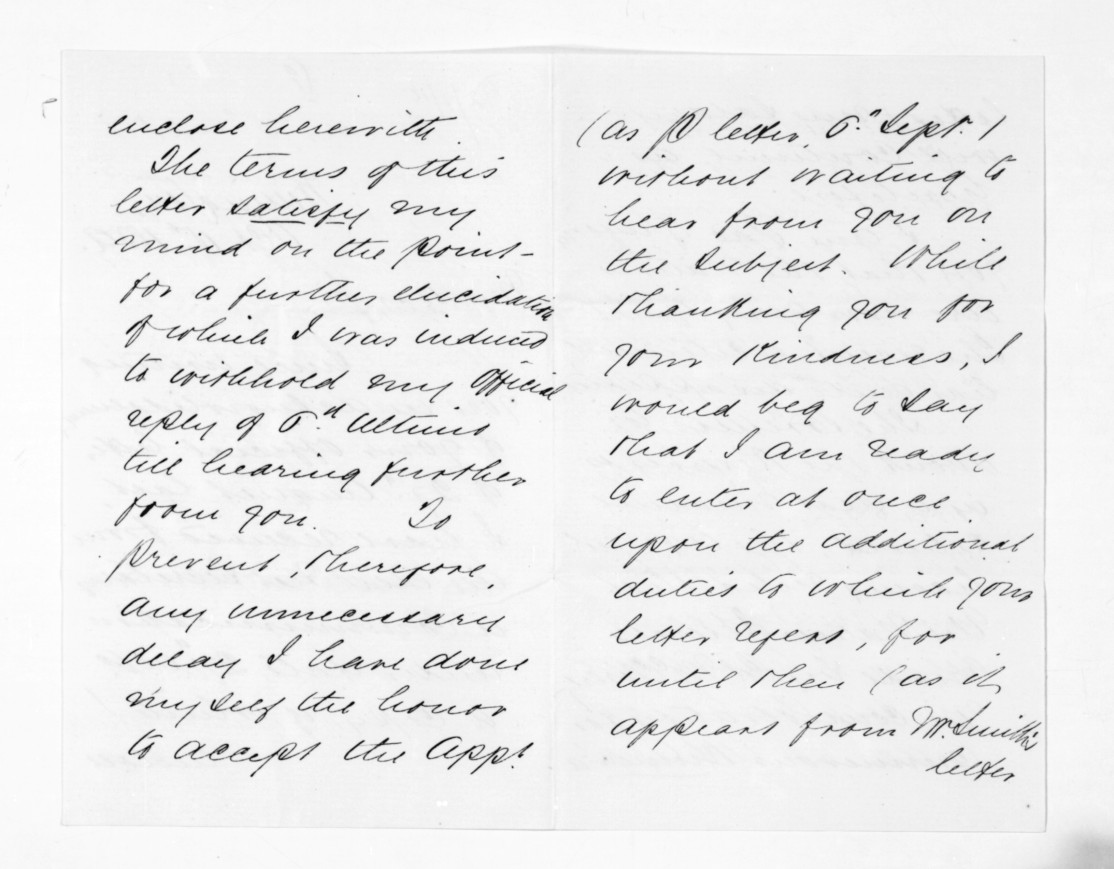 enclose herewith.
The terms of this
letter satisfy my
mind on the point -
for a further elucidation
of which I was induced
to withhold my Official
reply of 6.th Ultimo
till hearing further
from you. To
prevent, therefore,
any unnecessary
delay I have done
myself the honor
to accept the Appt.
(as letter, 6.th Sept.)
without waiting to
hear from you on
the subject. While
thanking you for
your kindness, I
would beg to say
that I am ready
to enter at once
upon the additional
duties to which your
letter refers, for
until then (as it
appears from Mr. Smith's
letter